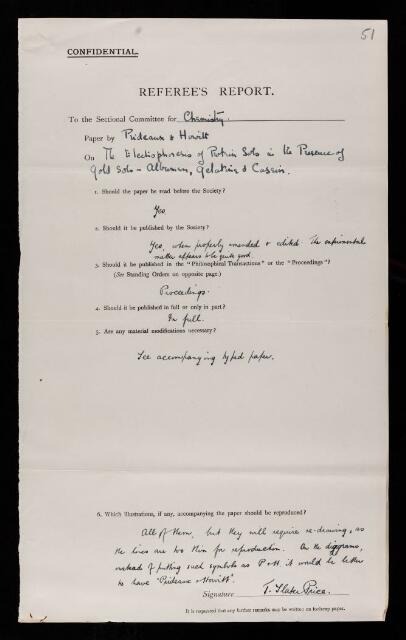 51
CONFIDENTIAL.
REFEREE'S REPORT.
To the Sectional Committee for Chemistry.
Paper by Prideaux & Howitt
On The Electrophoresis of Protein Sols in the Presence of
Gold Sols – Albumin, Gelatin & Casein.
1. Should the paper be read before the Society?
Yes
2. Should it be published by the Society?
Yes, when properly amended & edited. The experimental
matter appears to be quite good.
3. Should it be published in the "Philosophical Transactions" or the "Proceedings"?
(See Standing Orders on opposite page.)
Proceedings.
4. Should it be published in full or only in part?
In full.
5. Are any material modifications necessary?
See accompanying typed paper.
6. Which illustrations, if any, accompanying the paper should be reproduced?
All of them, but they will require re-drawing, as
the lines are too thin for reproduction. On the diagrams,
instead of putting such symbols as P & H. it would be better
to have 'Prideaux & Howitt'.
Signature T. Slater Price.
It is requested that any further remarks may be written on foolscap paper.